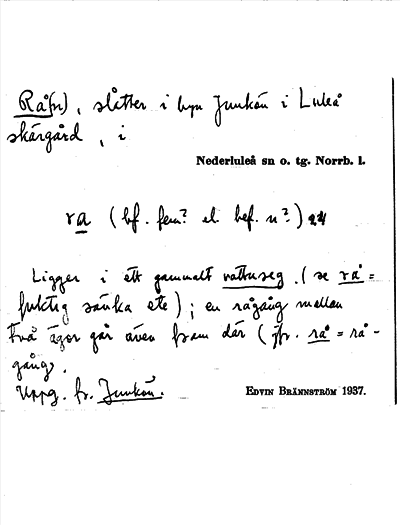 Rå(n), slåtter i byn Junkön i Luleå
skärgård, i
Nederluleå sn o. tg. Norrb. l.
ra (bf. fem? el. bef. n?)
Ligger i ett gammalt vattuseg. (se rå=
fuktig sänka etc); en rågång mellan
två ägor går även fram där (jfr. rå = rå-
gång).
Uppg. fr. Junkön.
EDVIN BRÄNNSTRÖM 1937.